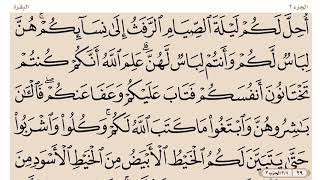 الجزء ٢ البقرة
أُحِلَّ لَكُمْ لَيْلَةَ ٱلصِّيَامِ ٱلرَّفَثُ إِلَىٰ نِسَآئِكُمْ ۚ هُنَّ
لِبَاسٌ لَّكُمْ وَأَنتُمْ لِبَاسٌ لَّهُنَّ ۗ عَلِمَ ٱللَّهُ أَنَّكُمْ كُنتُمْ
تَخْتَانُونَ أَنفُسَكُمْ فَتَابَ عَلَيْكُمْ وَعَفَا عَنكُمْ ۖ فَٱلْـَٰٔنَ
بَـٰشِرُوهُنَّ وَٱبْتَغُوا۟ مَا كَتَبَ ٱللَّهُ لَكُمْ ۚ وَكُلُوا۟ وَٱشْرَبُوا۟
حَتَّىٰ يَتَبَيَّنَ لَكُمُ ٱلْخَيْطُ ٱلْأَبْيَضُ مِنَ ٱلْخَيْطِ ٱلْأَسْوَدِ مِنَ
٢٩